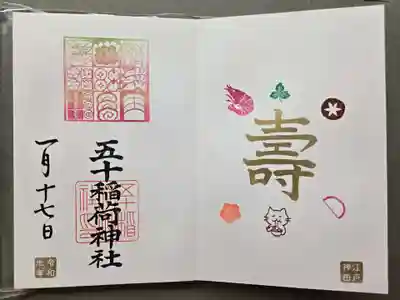 壽
江戸
神田
五十稲荷神社
一月十七日
令和